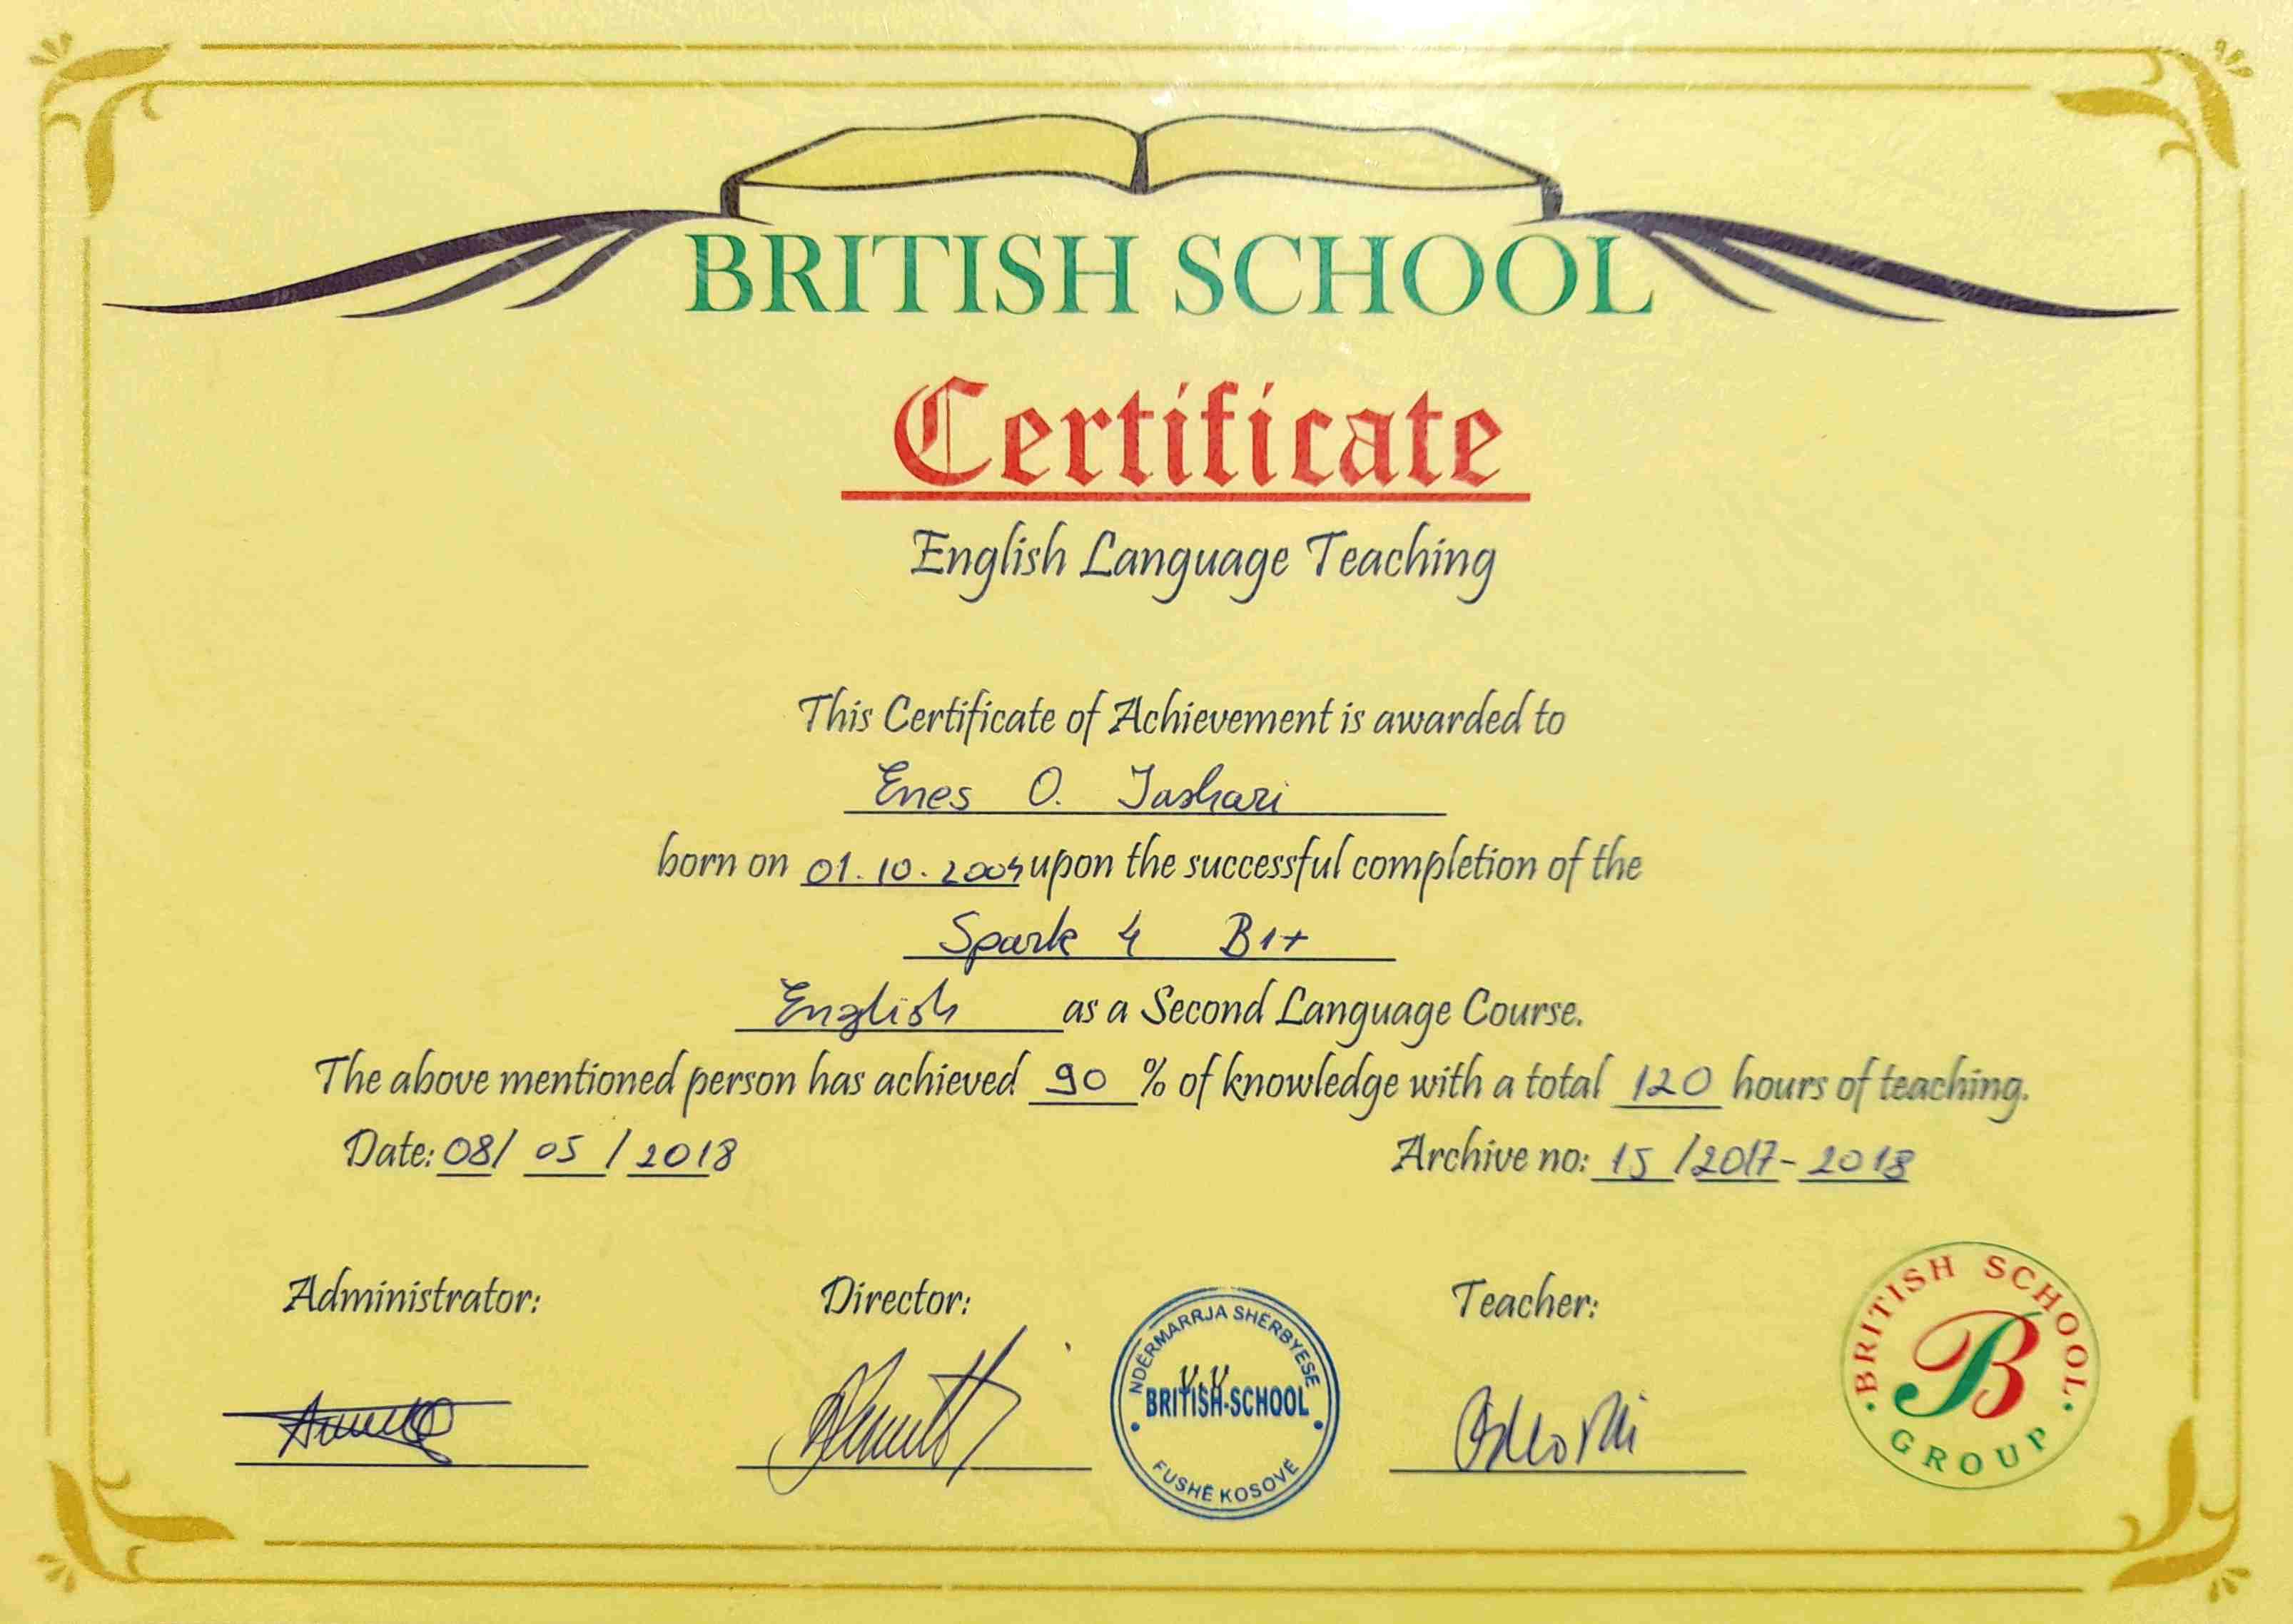 BRITISH SCHOOL
Certificate
English Language Teaching
This Certificate of Achievement is awarded to
Enes O. Jashari
born on 01.10.2004 upon the successful completion of the
Spark 4 B1+
English as a Second Language Course.
The above mentioned person has achieved 90 % of knowledge with a total 120 hours of teaching.
Date: 08/ 05 / 2018
Archive no: 15 /2017-2018
Administrator:
Director:
Teacher:
NDËRMARRJA SHËRBYESE
BRITISH-SCHOOL
FUSHË KOSOVË
BRITISH SCHOOL
B
GROUP